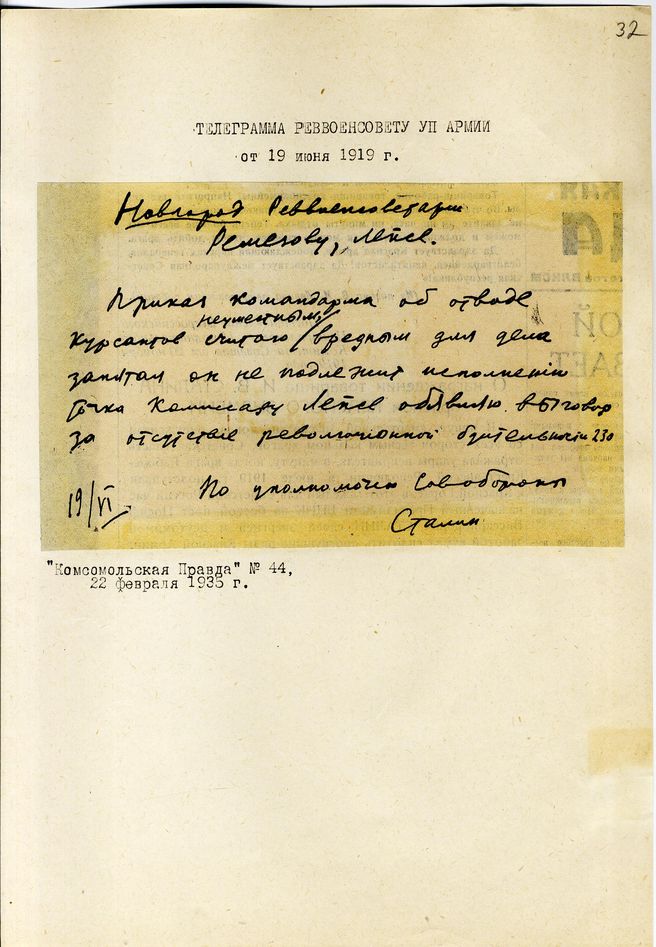 32
ТЕЛЕГРАММА РЕВВОЕНСОВЕТУ УП АРМИИ
от 19 июня 1919 г.
Новгород Реввоенсоветарм
Ремезову, Лепсе.
Приказ командарма об отводе
неуместным,
курсантов считаю / вредным для дела
запятая он не подлежит исполнению
точка Комиссару Лепсе объявляю выговор
за отсутствие революционной бдительности
19/VI. По уполномочию Совобороны
Сталин
"Комсомольская Правда" № 44,
22 февраля 1935 г.